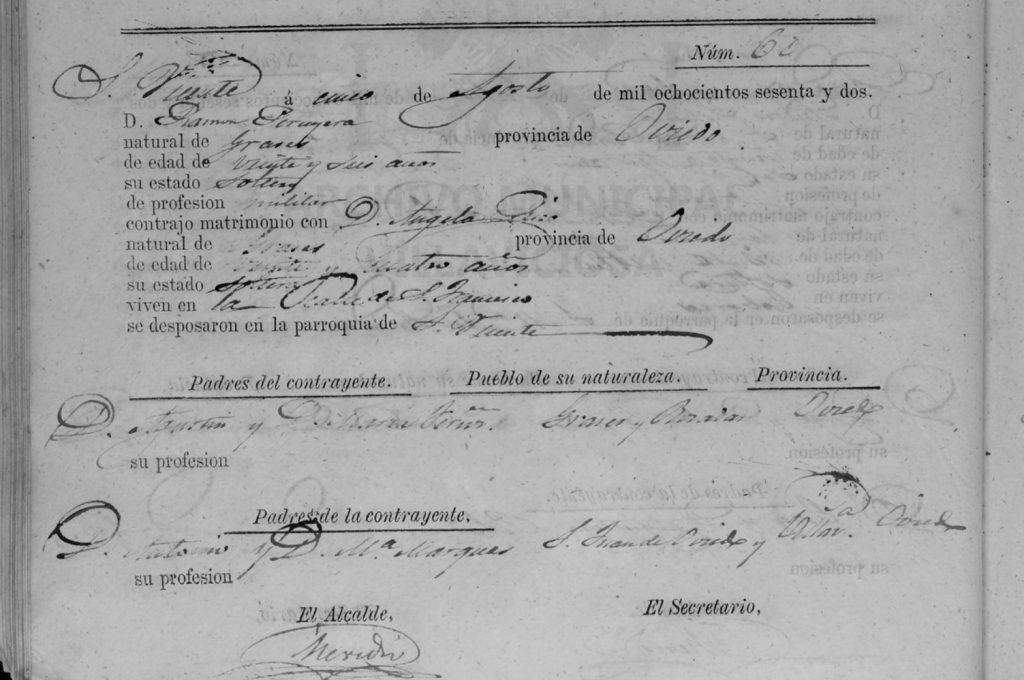 Núm. 62
S. Vicente á cinco de Agosto de mil ochocientos sesenta y dos.
D. Ramon Peruyera
natural de Grases provincia de Oviedo
de edad de veinte y seis años
su estado Soltero
de profesion militar
contrajo matrimonio con D. Angela Rico
natural de Grases provincia de Oviedo
de edad de veinte y cuatro años
su estado Soltera
viven en la Calle de S. Francisco
se desposaron en la parroquia de S. Vicente
Padres del contrayente. Pueblo de su naturaleza. Provincia.
D. Agustin y D. Maria Grases y Oviedo
su profesion
Padres de la contrayente,
D. Antonio y D. Mª Marques S. Juan de Oviedo y Oviedo
su profesion
El Alcalde, El Secretario,